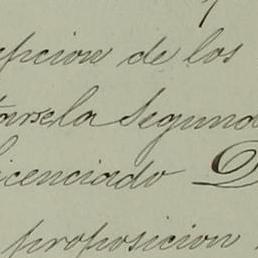 epcion de los
tarsela Segund
licenciado D
proposicion